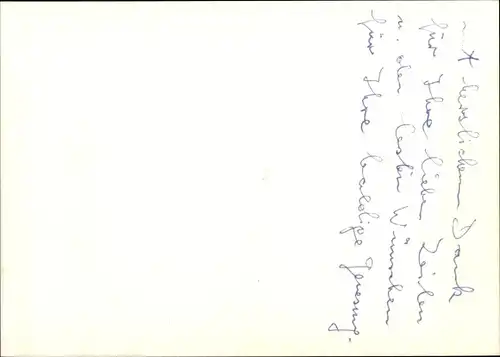 mit herzlichem Dank
für Ihre lieben Zeilen
u. den besten Wünschen
für Ihre baldige Genesung.